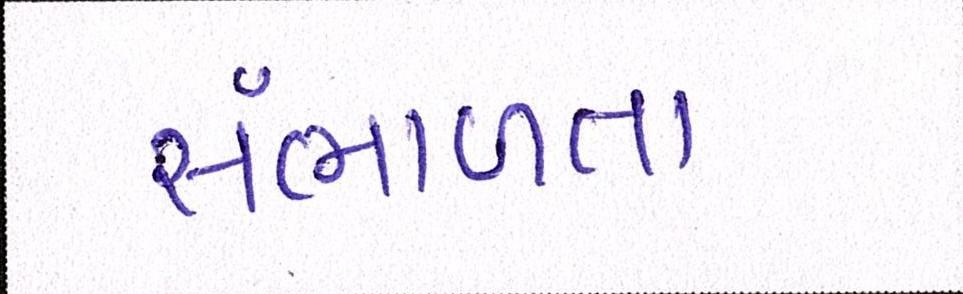 સંભાળતા